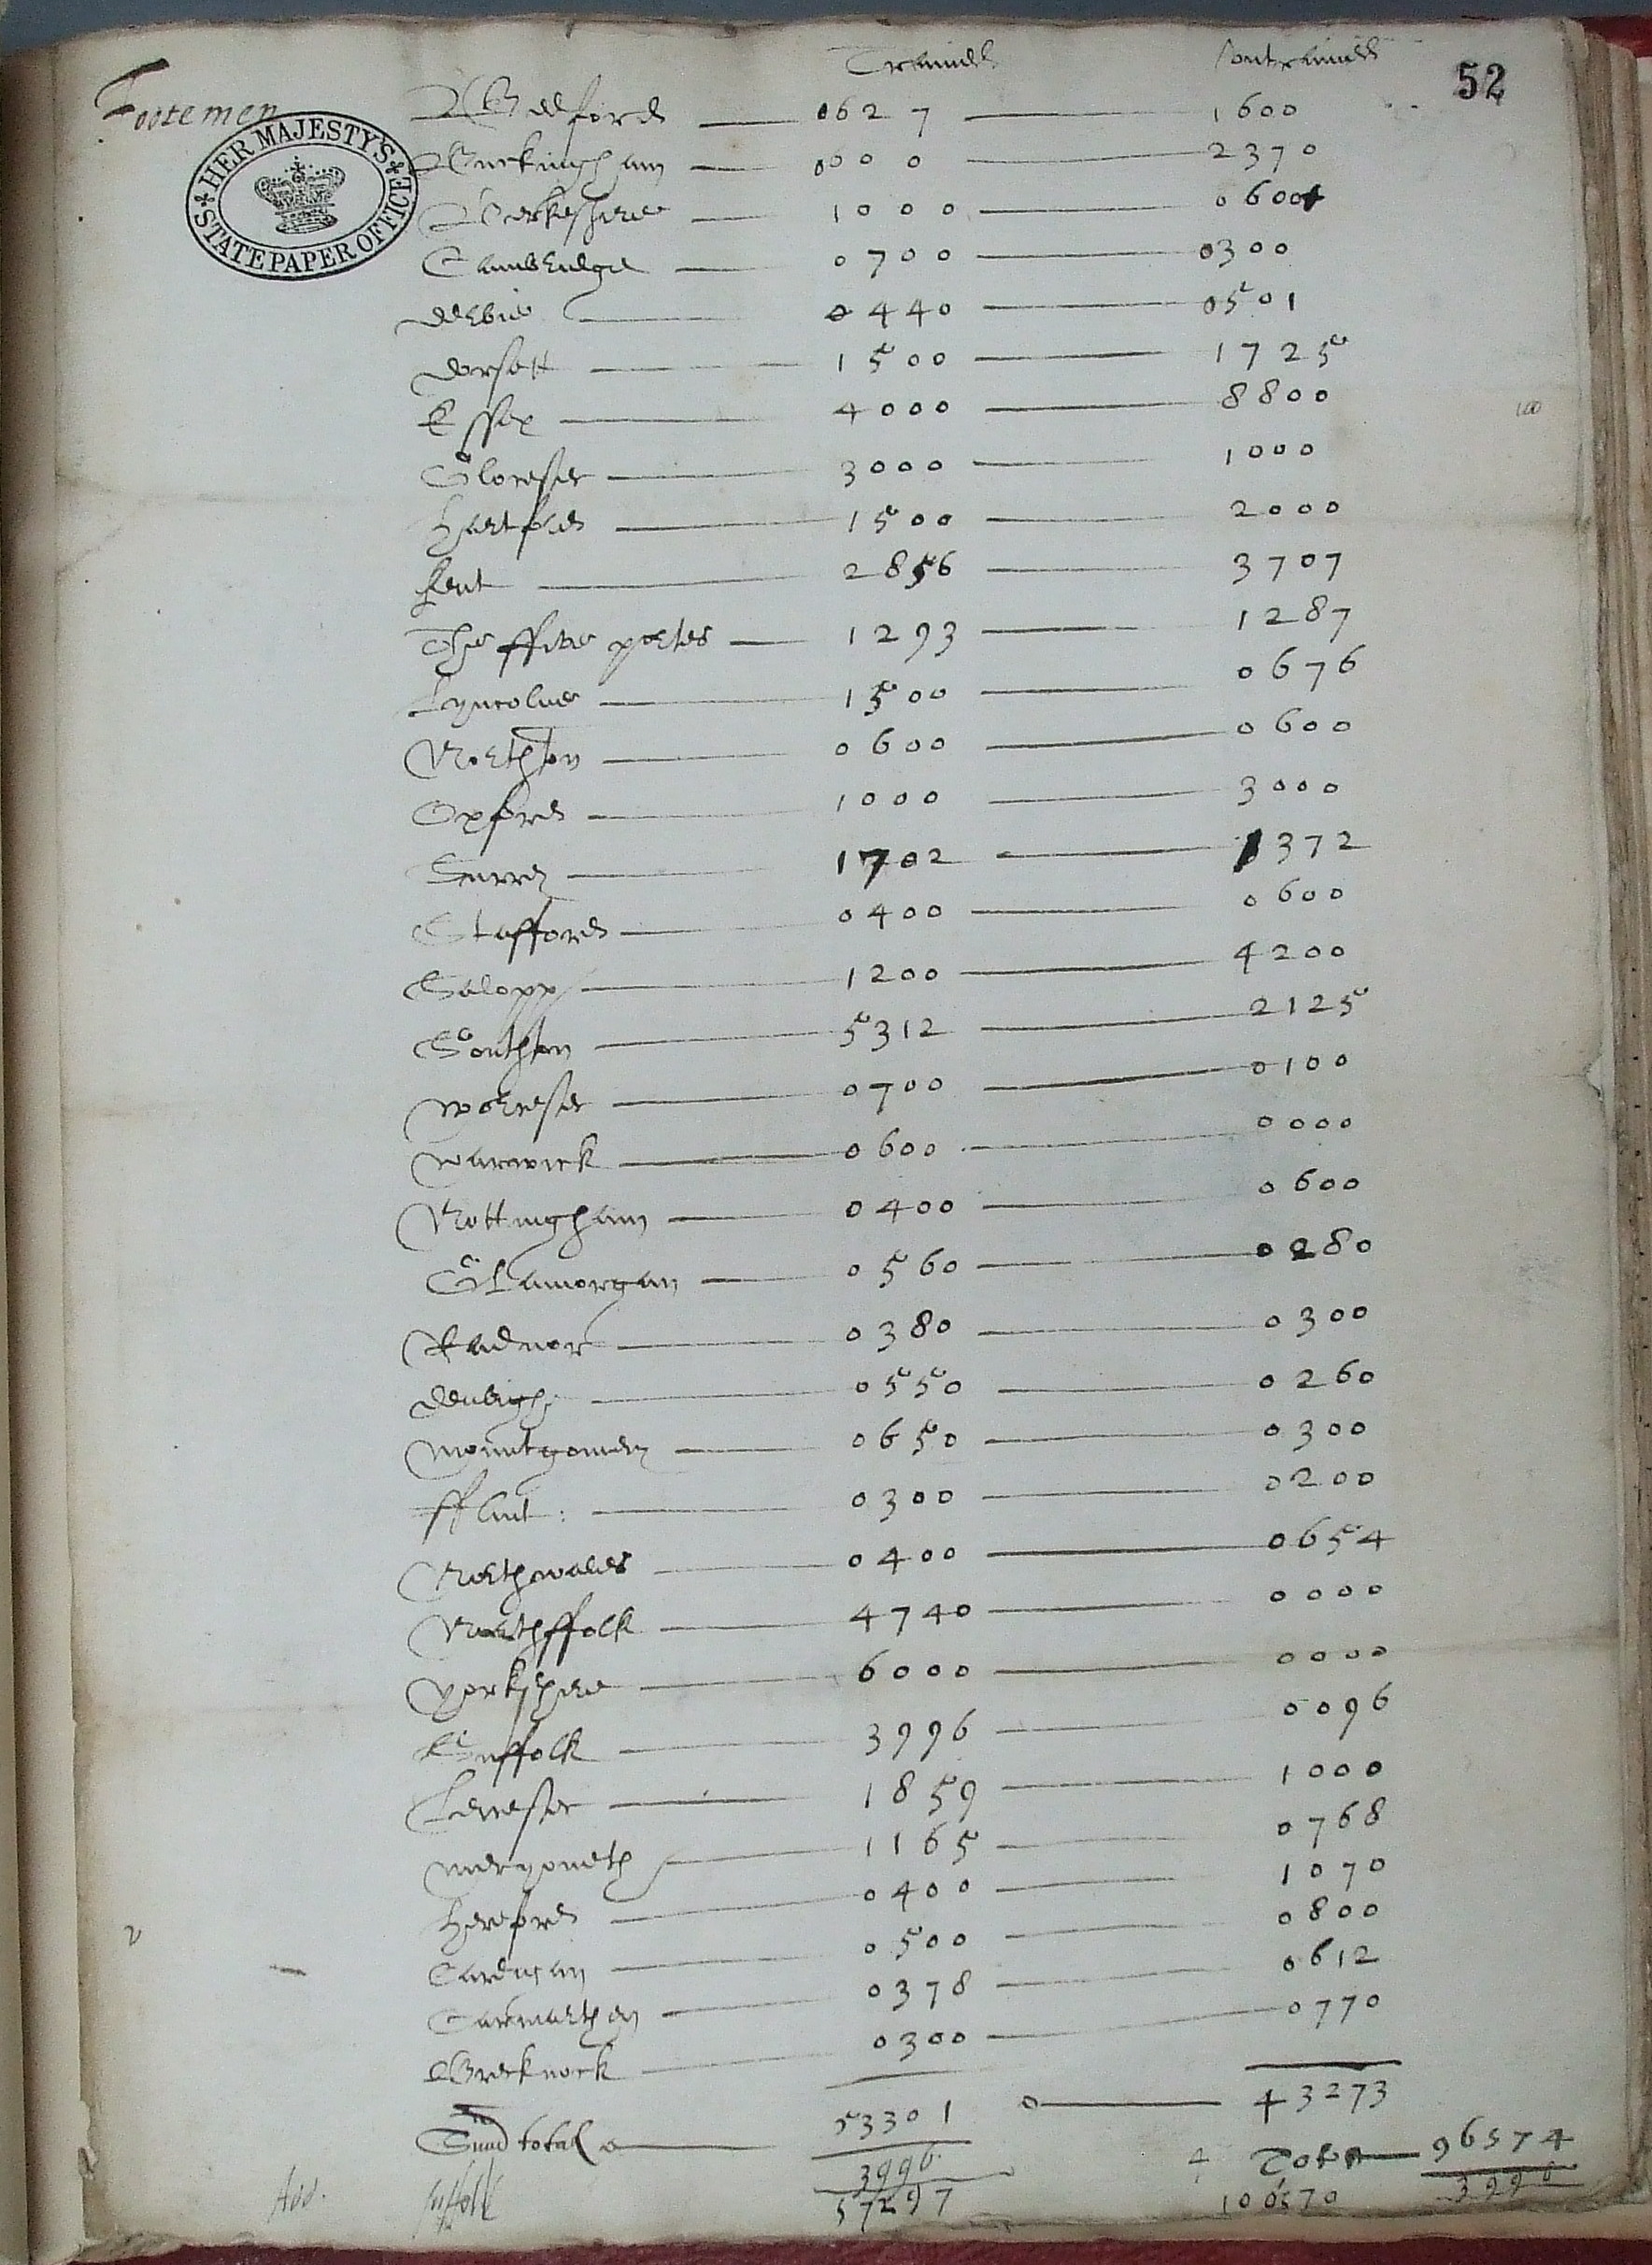 Footemen Trained Untrained 52
HER MAJESTY'S STATE PAPER OFFICE
Bedford 0627 1600
Buckingham 0600 2370
Berkeshire 1000 0600
Cambridge 0700 0300
Derbie 0440 0501
Dorsett 1500 1725
Essex 4000 8800
100
Glocester 3000 1000
Hartford 1500 2000
Kent 2856 3707
The ffive portes 1293 1287
Lyncolne 1500 0676
Northton 0600 0600
Oxford 1000 3000
Surrey 1702 1372
Stafford 0400 0600
Salopp 1200 4200
Southton 5312 2125
Worcester 0700 0100
Warwick 0600 0000
Nottingham 0400 0600
Glamorgan 0560 0280
Radnor 0380 0300
Denbigh 0550 0260
Mountgomery 0650 0300
fflint : 0300 0200
Northwales 0400 0654
Northffolk 4740 0000
Yorkshire 6000 0000
Suffolk 3996 0096
Leicester 1859 1000
Meryoneth 1165 0768
Hereford 0400 1070
Cardigan 0500 0800
Carmarthen 0378 0612
Brecknock 0300 0770
Sum total 53301 43273
Tot 96574
Add. Suffolk 3996 3996
57297 100570